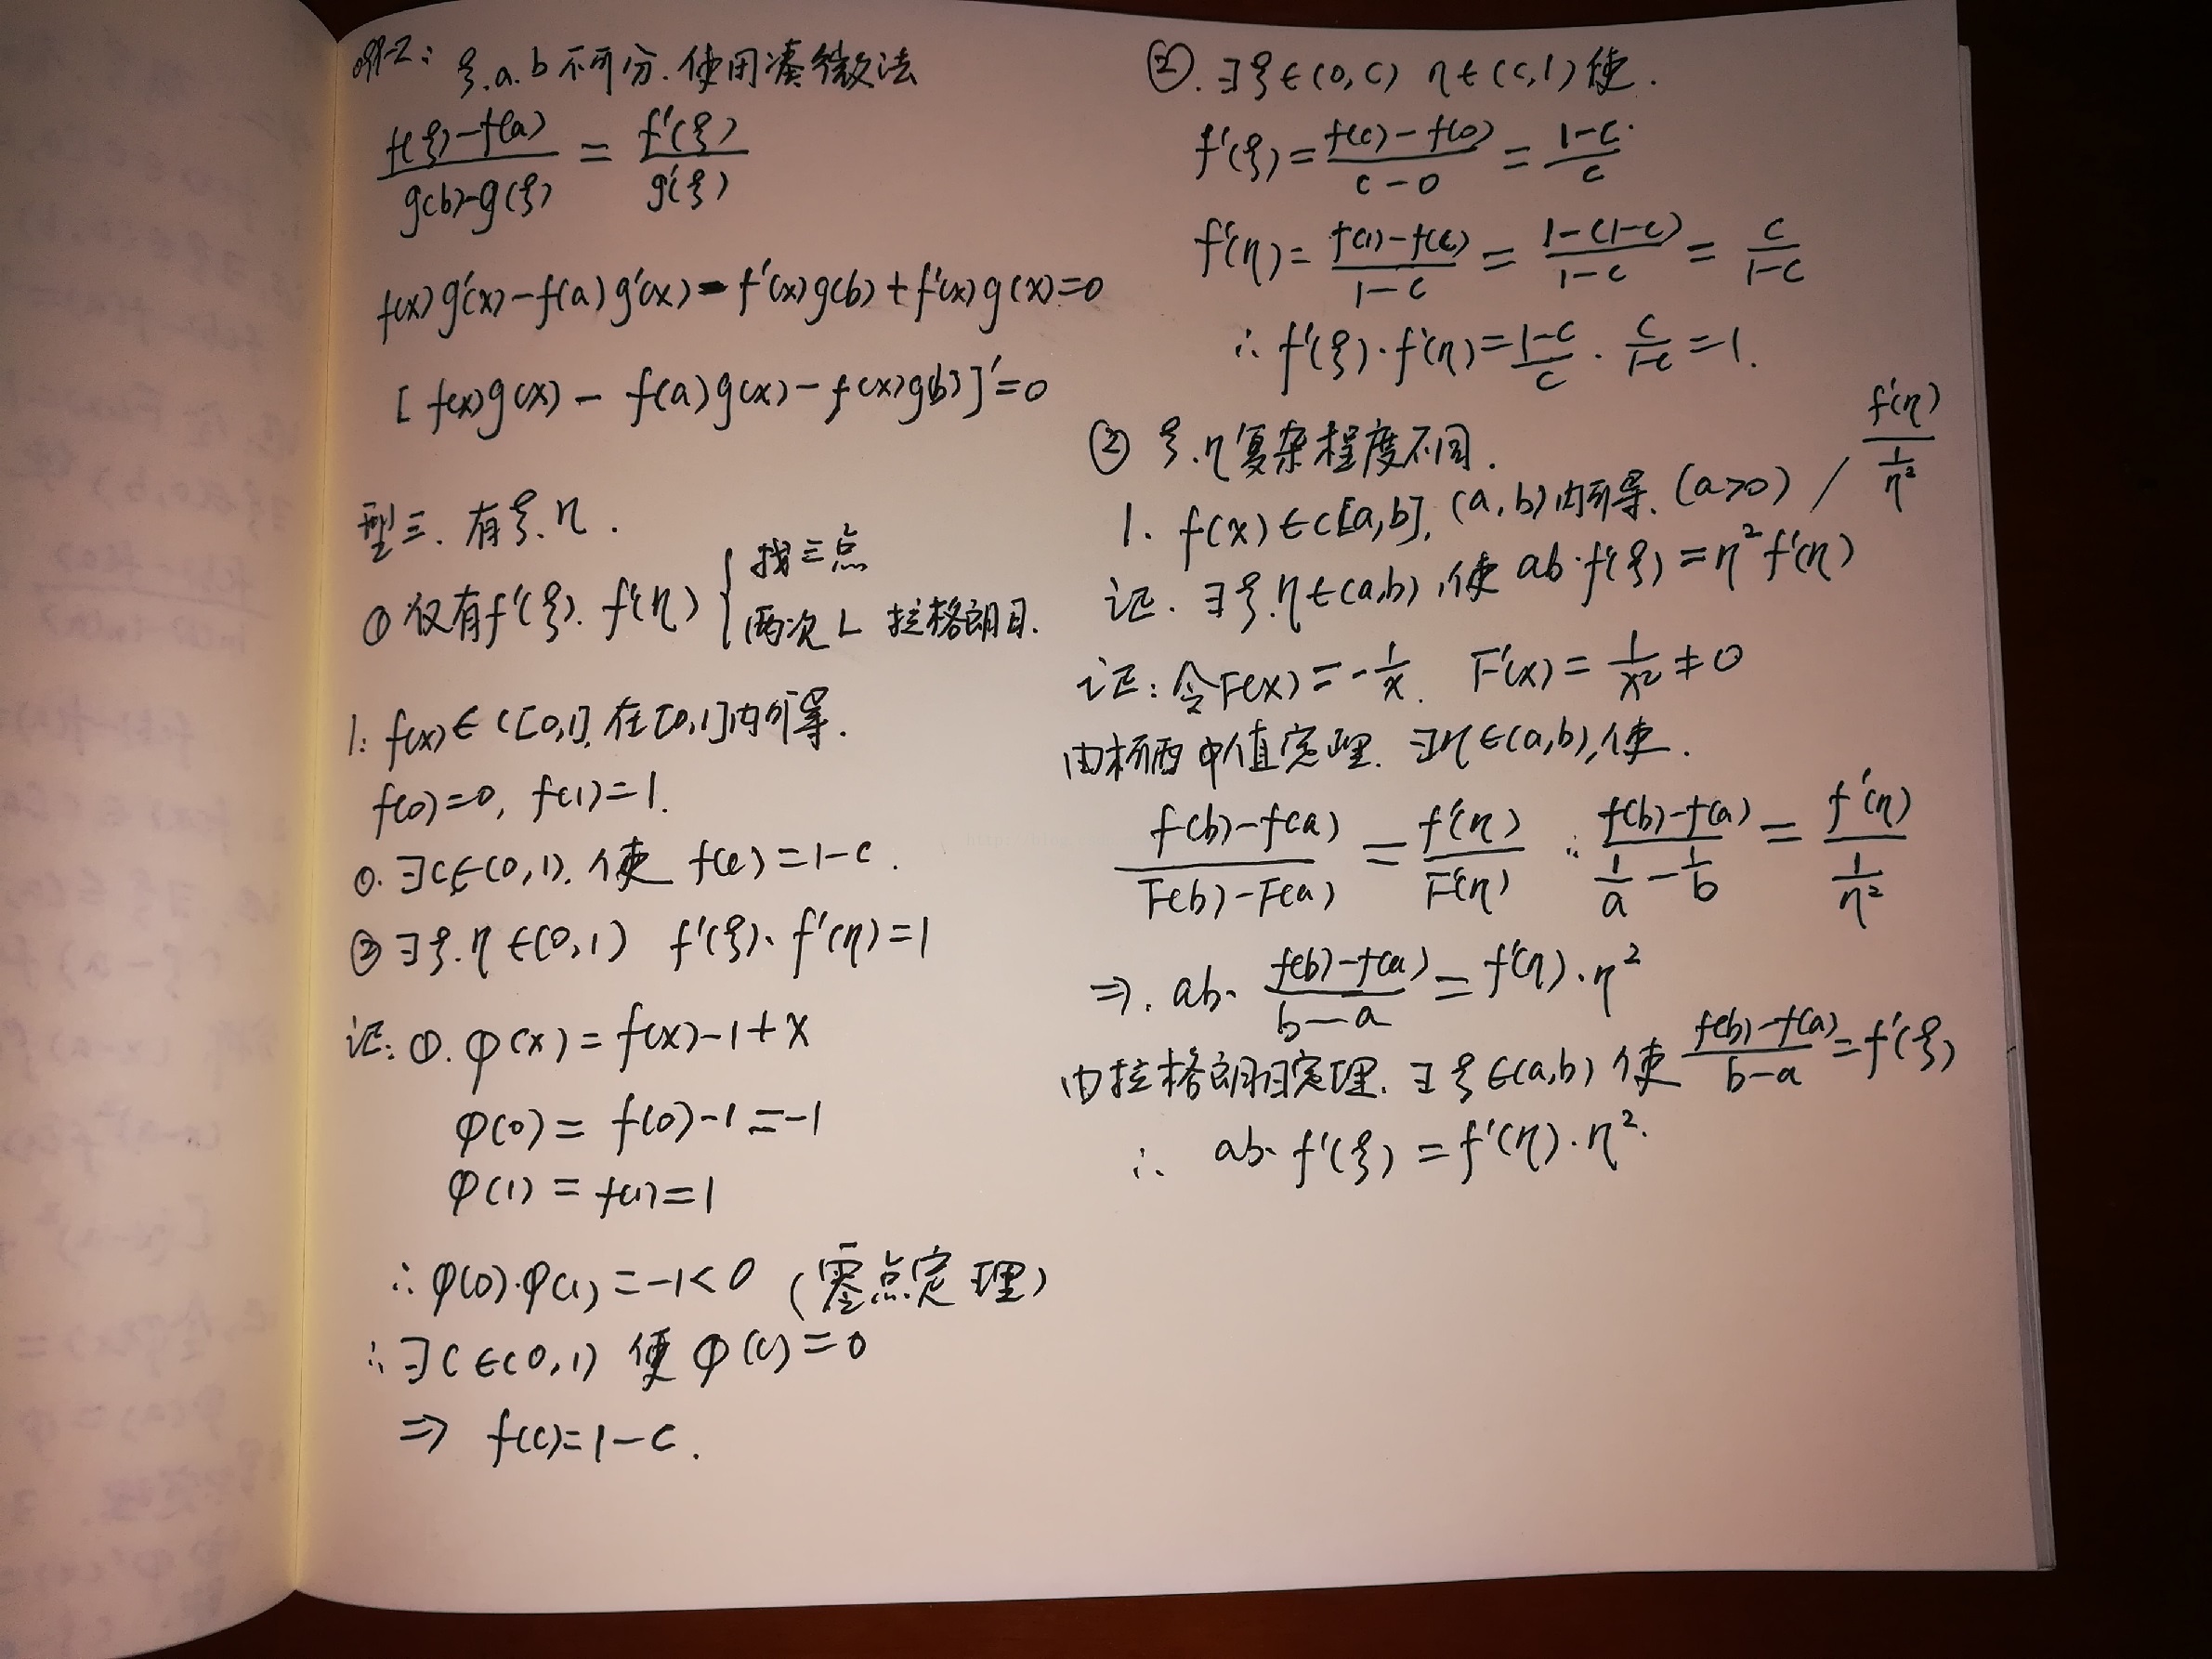 例-2: ξ.a.b不可分.使用凑微法
(f(ξ)-f(a))/(g(b)-g(ξ)) = f'(ξ)/g'(ξ)
f(x)g'(x)-f(a)g'(x)-f'(x)g(b)+f'(x)g(x)=0
[f(x)g(x)-f(a)g(x)-f(x)g(b)]'=0
型三.有ξ.η.
①仅有f'(ξ).f'(η) { 找三点
两次L 拉格朗日.
1: f(x)∈C[0,1],在[0,1]内可导.
f(0)=0, f(1)=1.
①.∃c∈(0,1).使 f(c)=1-c.
②∃ξ.η∈(0,1) f'(ξ)·f'(η)=1
证:①.φ(x)=f(x)-1+x
φ(0)=f(0)-1=-1
φ(1)=f(1)=1
∴φ(0)·φ(1)=-1<0 (零点定理)
∴∃c∈(0,1) 使φ(c)=0
⇒ f(c)=1-c.
②.∃ξ∈(0,c) η∈(c,1)使.
f'(ξ)=(f(c)-f(0))/(c-0)=(1-c)/c.
f'(η)=(f(1)-f(c))/(1-c)=(1-(1-c))/(1-c)=c/(1-c)
∴f'(ξ)·f'(η)=(1-c)/c·c/(1-c)=1.
②ξ.η复杂程度不同.
1. f(x)∈C[a,b],(a,b)内可导.(a>0) / f'(η)/(1/η²)
证.∃ξ.η∈(a,b),使ab·f'(ξ)=η²f'(η)
证:令F(x)=-1/x. F'(x)=1/x²≠0
由柯西中值定理.∃η∈(a,b),使.
(f(b)-f(a))/(F(b)-F(a))=f'(η)/F'(η) ∴(f(b)-f(a))/(1/a-1/b)=f'(η)/(1/η²)
⇒.ab·(f(b)-f(a))/(b-a)=f'(η)·η²
由拉格朗日定理.∃ξ∈(a,b)使(f(b)-f(a))/(b-a)=f'(ξ)
∴ ab·f'(ξ)=f'(η)·η².